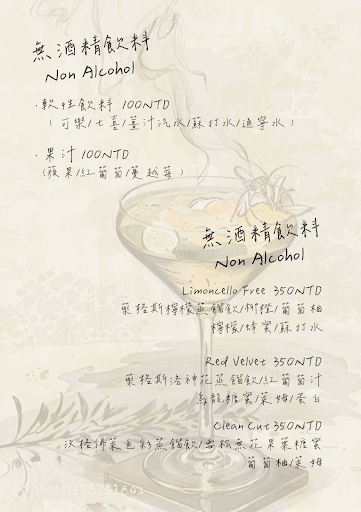 無酒精飲料
Non Alcohol
·軟性飲料 100NTD
(可樂/七喜/薑汁汽水/蘇打水/通寧水)
·果汁 100NTD
(蘋果/紅葡萄/蔓越莓)
無酒精飲料
Non Alcohol
Limoncello Free 350NTD
萊格斯檸檬蒸餾飲/柳橙/葡萄柚
檸檬/蜂蜜/蘇打水
Red Velvet 350NTD
萊格斯洛神花蒸餾飲/紅葡萄汁
糖蜜/萊姆/蛋白
Clean Cut 350NTD
沃格佛萊色彩蒸餾飲/雪松無花果葉糖蜜
葡萄柚/萊姆